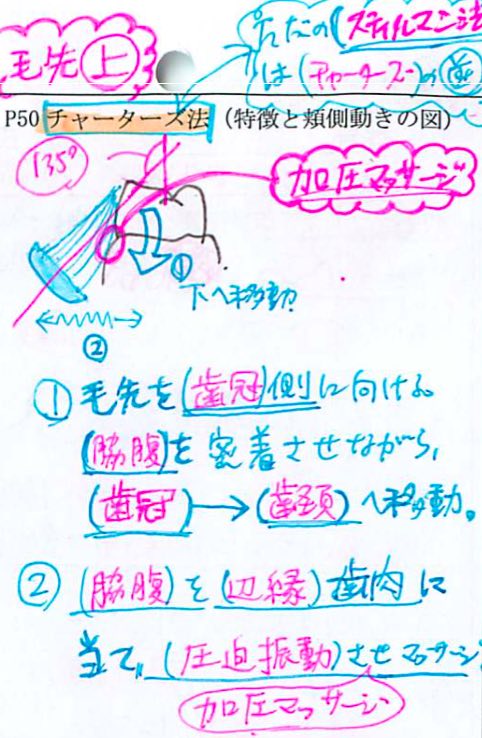 毛先(上)
ただの(スティルマン法
は(チャーターズ)の
P50 チャーターズ法 (特徴と頬側動きの図)
135°
加圧マッサージ
①
下へ移動
②
① 毛先を(歯冠)側に向ける。
(脇腹)を密着させながら、
(歯冠)→(歯頚)へ移動。
② (脇腹)を(辺縁)歯肉に
当て、(圧迫振動)させマッサージ
加圧マッサージ